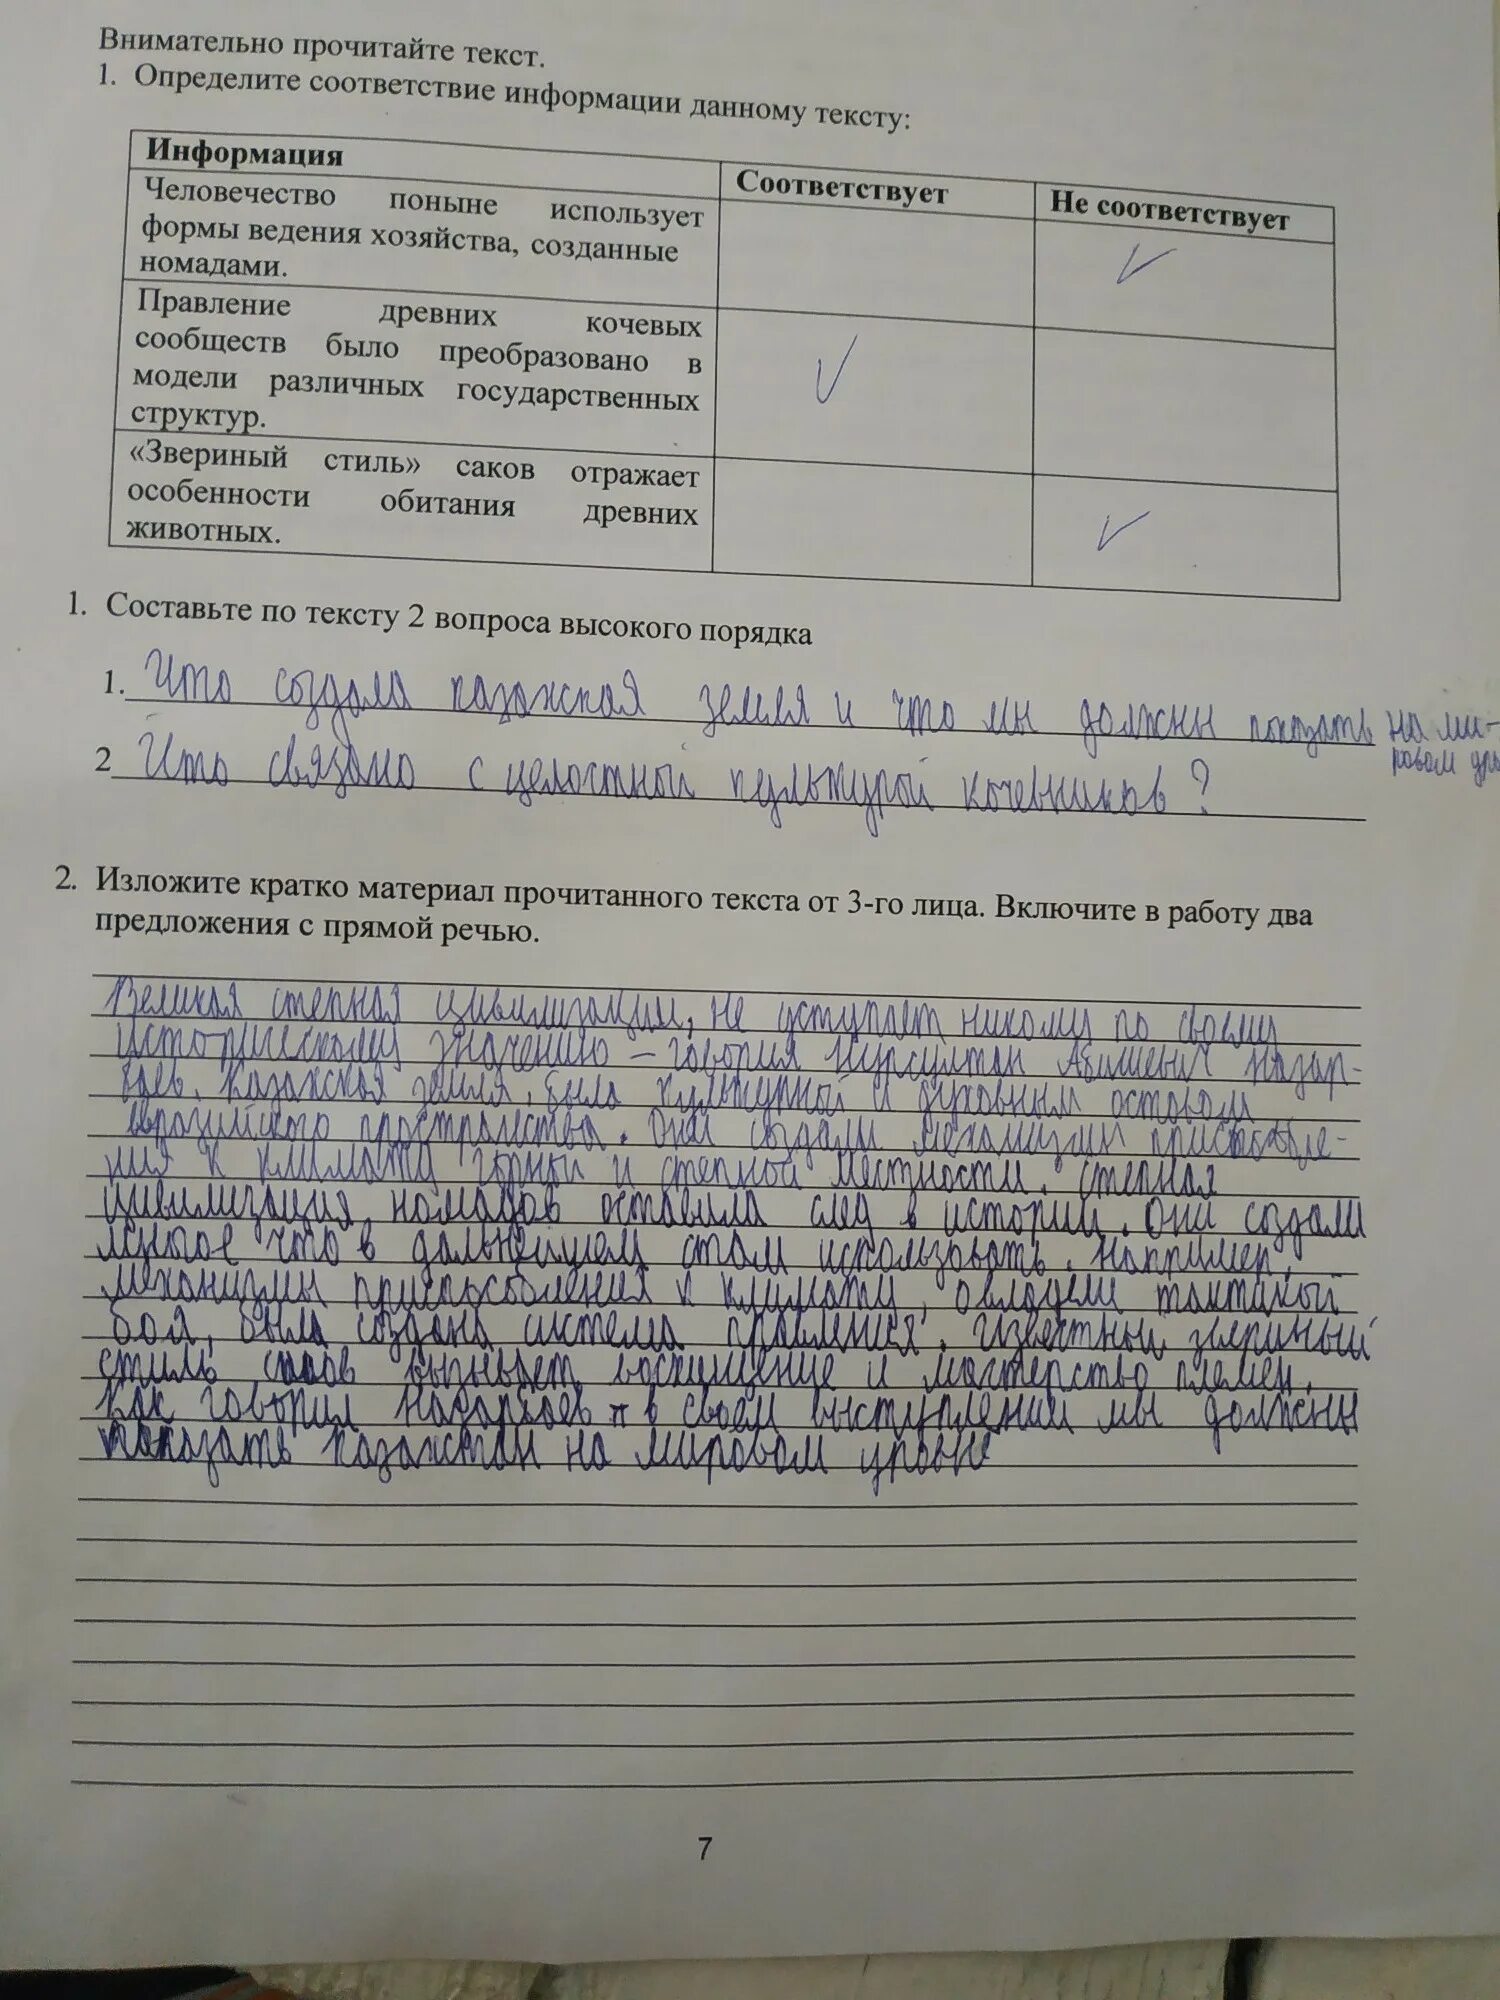 Внимательно прочитайте текст.
1. Определите соответствие информации данному тексту:
Информация
Соответствует
Не соответствует
Человечество поныне использует
формы ведения хозяйства, созданные
номадами.
Правление древних кочевых
сообществ было преобразовано в
модели различных государственных
структур.
«Звериный стиль» саков отражает
особенности обитания древних
животных.
1. Составьте по тексту 2 вопроса высокого порядка
1. Что создала казахская земля и что мы должны показать на ми-
ровом
2 Что связано с целостной культурой кочевников?
2. Изложите кратко материал прочитанного текста от 3-го лица. Включите в работу два
предложения с прямой речью.
Великая степная цивилизации, не уступает никому по своему
историческому значению – говорил Нурсултан Абишевич Назар-
баев. Казахская земля, была культурной и духовным остовом
евразийского пространства. Они создали механизмы приспособле-
ния к климату горной и степной местности. Степная
цивилизация номадов оставила след в истории. Они создали
многое что в дальнейшем стали использовать. Например,
механизмы приспособления к климату, овладели тактикой
боя, была создана система правления. Известный звериный
стиль саков вызывает восхищение и мастерство племен.
Как говорил Назарбаев в своем выступлении мы должны
показать Казахстан на мировом уровне
7